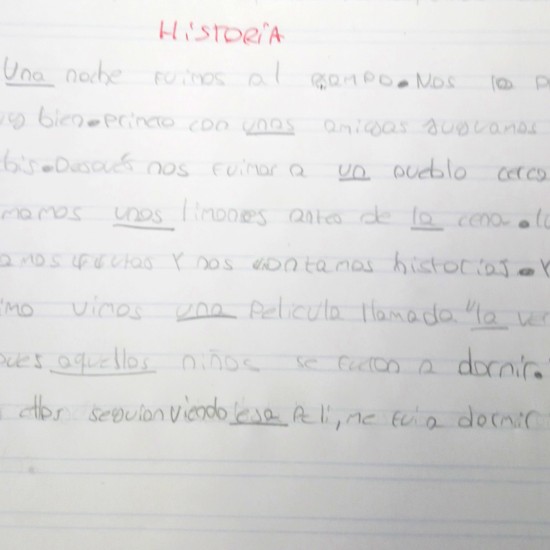 HISTORIA
Una noche fuimos al campo. Nos lo p
bien. primero con unos amigas jugamos
bis. Despues nos fuimos a un pueblo cerca
mamos unos limones antes de la cena. lo
amos frutas Y nos contamos historias. Y
imo vimos una Pelicula llamada "la ver
pues aquellos niños se fueron a dormir.
ellos seguian viendo esa Peli, me fui a dormir